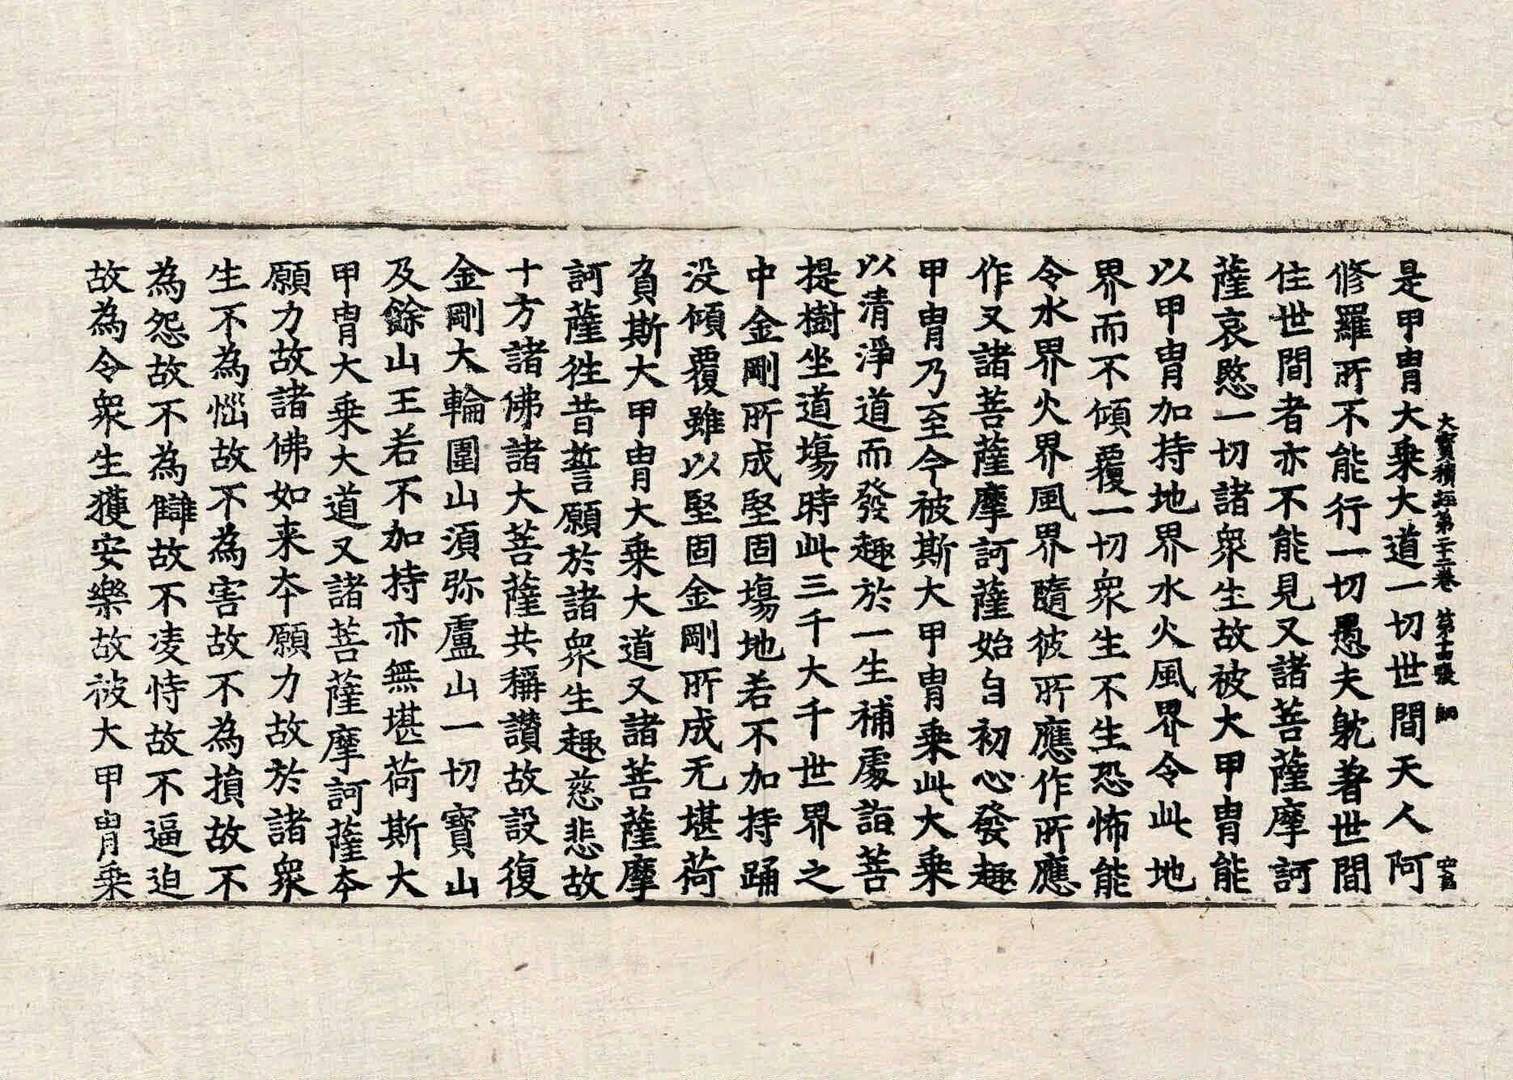 大寶積經第二十三卷 第十四張 鳥
是甲冑大乘大道一切世間天人阿
修羅所不能行一切愚夫躭著世間
住世間者亦不能見又諸菩薩摩訶
薩哀愍一切諸衆生故被大甲冑能
以甲冑加持地界水火風界令此地
界而不傾覆一切衆生不生恐怖能
令水界火界風界隨彼所應作所應
作又諸菩薩摩訶薩始自初心發趣
甲冑乃至今被斯大甲冑乘此大乘
以清淨道而發趣於一生補處詣菩
提樹坐道場時此三千大千世界之
中金剛所成堅固塲地若不加持踊
没傾覆雖以堅固金剛所成无堪荷
負斯大甲冑大乘大道又諸菩薩摩
訶薩徃昔誓願於諸衆生趣慈悲故
十方諸佛諸大菩薩共稱讚故設復
金剛大輪圍山湏弥盧山一切寶山
及餘山王若不加持亦無堪荷斯大
甲冑大乘大道又諸菩薩摩訶薩夲
願力故諸佛如来夲願力故於諸衆
生不為惱故不為害故不為損故不
為怨故不為讎故不凌恃故不逼迫
故為令衆生獲安樂故被大甲冑乘